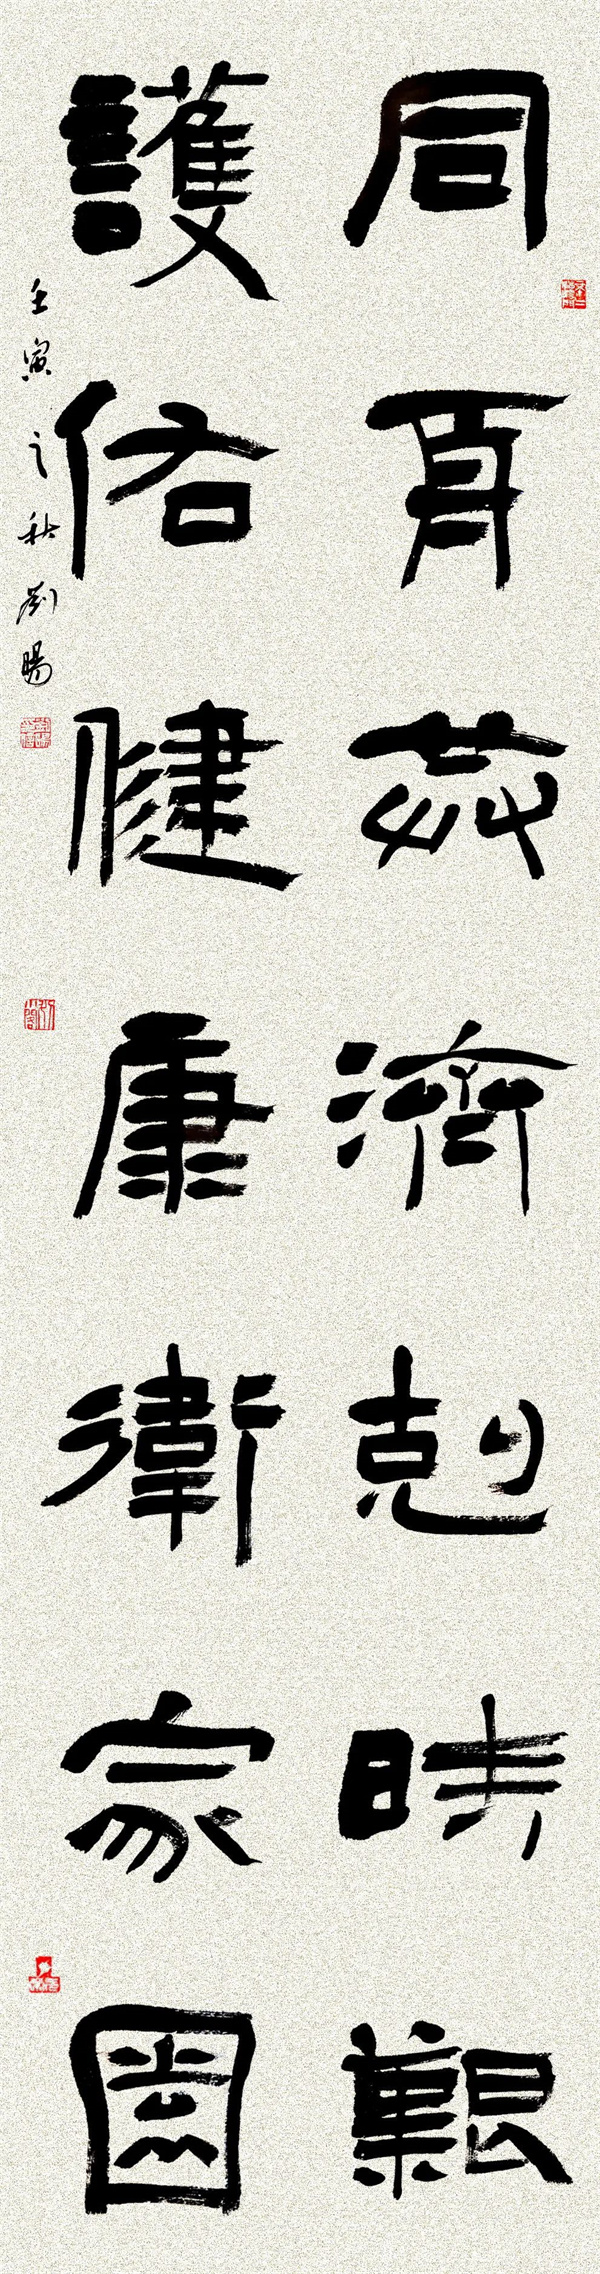 同舟共濟尅時艱
護佑健康衛家國
壬寅之秋劉暘